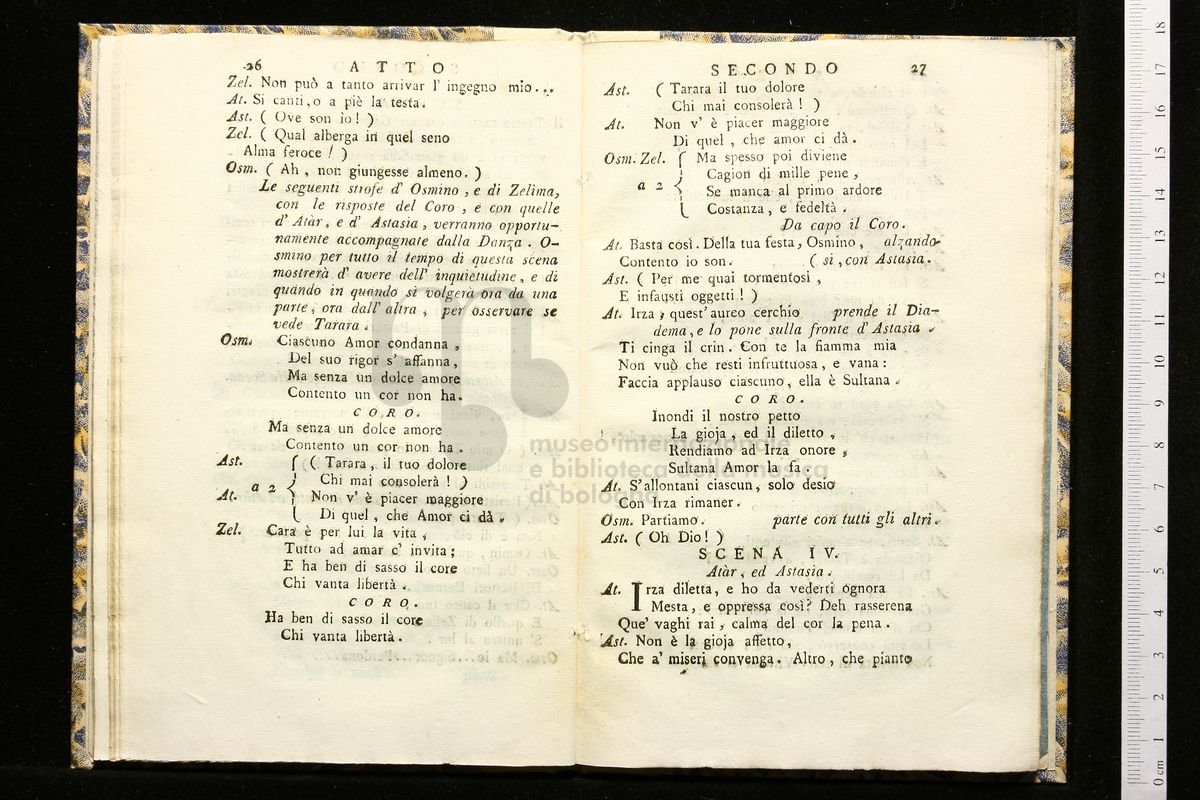 26 ATTO
Zel. Non può a tanto arrivar l' ingegno mio...
At. Si canti, o a piè la testa.
Ast. ( Ove son io! )
Zel. ( Qual alberga in quel seno
Alma feroce! )
Osm. ( Ah, non giungesse almeno. )
Le seguenti strofe d' Osmino, e di Zelima,
con le risposte del Coro, e con quelle
d' Atàr, e d' Astasia, verranno opportu-
namente accompagnate dalla Danza. O-
smino per tutto il tempo di questa scena
mostrerà d' avere dell' inquietudine, e di
quando in quando si volgerà ora da una
parte, ora dall' altra, per osservare se
vede Tarara.
Osm. Ciascuno Amor condanna,
Del suo rigor s' affanna,
Ma senza un dolce amore
Contento un cor non ha.
CORO.
Ma senza un dolce amore
Contento un cor non ha.
Ast. ( Tarara, il tuo dolore
a 2 Chi mai consolerà! )
At. Non v' è piacer maggiore
Di quel, che Amor ci dà.
Zel. Cara è per lui la vita,
Tutto ad amar c' invita;
E ha ben di sasso il core
Chi vanta libertà.
CORO.
Ha ben di sasso il core
Chi vanta libertà.
SECONDO 27
Ast. ( Tarara il tuo dolore
Chi mai consolerà! )
At. Non v' è piacer maggiore
Di quel, che amor ci dà.
Osm. Zel. Ma spesso poi diviene
Cagion di mille pene,
a 2 Se manca al primo ardore
Costanza, e fedeltà.
Da capo il Coro.
At. Basta così. Della tua festa, Osmino, alzando-
Contento io son. ( si, con Astasia.
Ast. ( Per me quai tormentosi,
E infausti oggetti! )
At. Irza, quest' aureo cerchio prende il Dia-
dema, e lo pone sulla fronte d' Astasia.
Ti cinga il crin. Con te la fiamma mia
Non vuò che resti infruttuosa, e vana:
Faccia applauso ciascuno, ella è Sultana.
CORO.
Inondi il nostro petto
La gioja, ed il diletto,
Rendiamo ad Irza onore,
Sultana Amor la fa.
At. S'allontani ciascun, solo desio
Con Irza rimaner.
Osm. Partiamo. parte con tutti gli altri.
Ast. ( Oh Dio! )
SCENA IV.
Atàr, ed Astasia.
At. Irza diletta, e ho da vederti ognora
Mesta, e oppressa così? Deh rasserena
Que' vaghi rai, calma del cor la pena.
Ast. Non è la gioja affetto,
Che a' miseri convenga. Altro, che pianto
museo internazionale
e biblioteca della musica
di bologna
0 cm 1 2 3 4 5 6 7 8 9 10 11 12 13 14 15 16 17 18